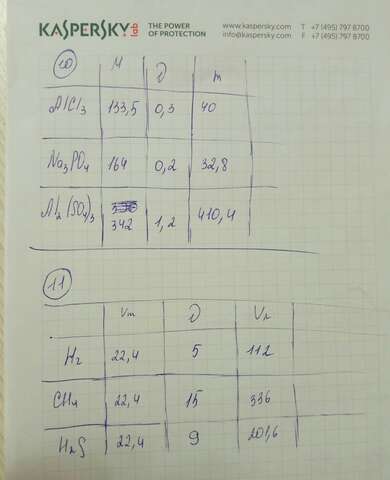 KASPERSKY lab
THE POWER
OF PROTECTION
www.kaspersky.com T +7 (495) 797 8700
info@kaspersky.com F +7 (495) 797 8700
10 M ν m
AlCl3 133,5 0,3 40
Na3PO4 164 0,2 32,8
Al2(SO4)3 342 1,2 410,4
11
Vm ν VA
H2 22,4 5 112
CH4 22,4 15 336
H2S 22,4 9 201,6